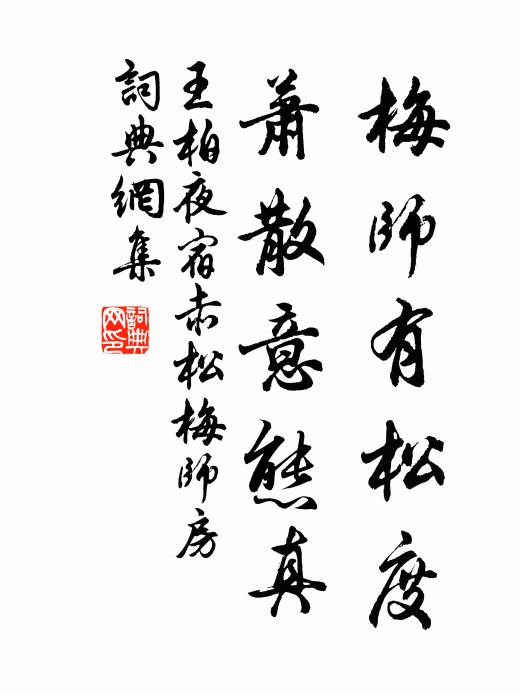 梅師有松度
蕭散意態真
王柏夜宿赤松梅師房
詞典網集
詞典网印